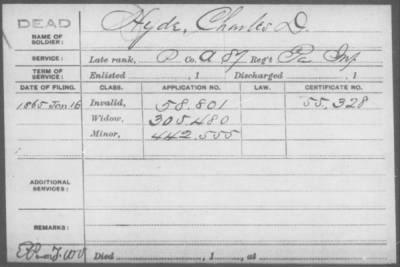 DEAD
NAME OF SOLDIER:
Hyde, Charles D.
SERVICE:
Late rank, P Co. A 87 Reg't Pa Inf
TERM OF SERVICE:
Enlisted , 1 Discharged , 1
DATE OF FILING. CLASS. APPLICATION NO. LAW. CERTIFICATE NO.
1865 Jan 16 Invalid, 58.801 55,328
Widow, 305.480
Minor, 442.555
ADDITIONAL SERVICES:
REMARKS:
Died , 1 , at